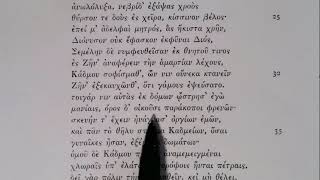 ἀνωλόλυξα, νεβρίδ' ἐξάψας χροὸς
θύρσον τε δοὺς ἐς χεῖρα, κίσσινον βέλος· 25
ἐπεί μ' ἀδελφαὶ μητρός, ἃς ἥκιστα χρῆν,
Διόνυσον οὐκ ἔφασκον ἐκφῦναι Διός,
Σεμέλην δὲ νυμφευθεῖσαν ἐκ θνητοῦ τινος
ἐς Ζῆν' ἀναφέρειν τὴν ἁμαρτίαν λέχους,
Κάδμου σοφίσμαθ', ὧν νιν οὕνεκα κτανεῖν
Ζῆν' ἐξεκαυχῶνθ', ὅτι γάμους ἐψεύσατο.
τοιγάρ νιν αὐτὰς ἐκ δόμων ᾤστρησ' ἐγὼ
μανίαις, ὄρος δ' οἰκοῦσι παράκοποι φρενῶν·
σκευήν τ' ἔχειν ὀργίων ἐμῶν,
καὶ πᾶν τὸ θῆλυ Καδμείων, ὅσαι 35
γυναῖκες ἦσαν, δωμάτων·
ὁμοῦ δὲ Κάδμου ἀναμεμειγμέναι
χλωραῖς ὑπ' ἀνορόφοις ἧνται πέτραις.
δεῖ γὰρ πόλιν ἐκμαθεῖν, κεἰ μὴ θέλει,